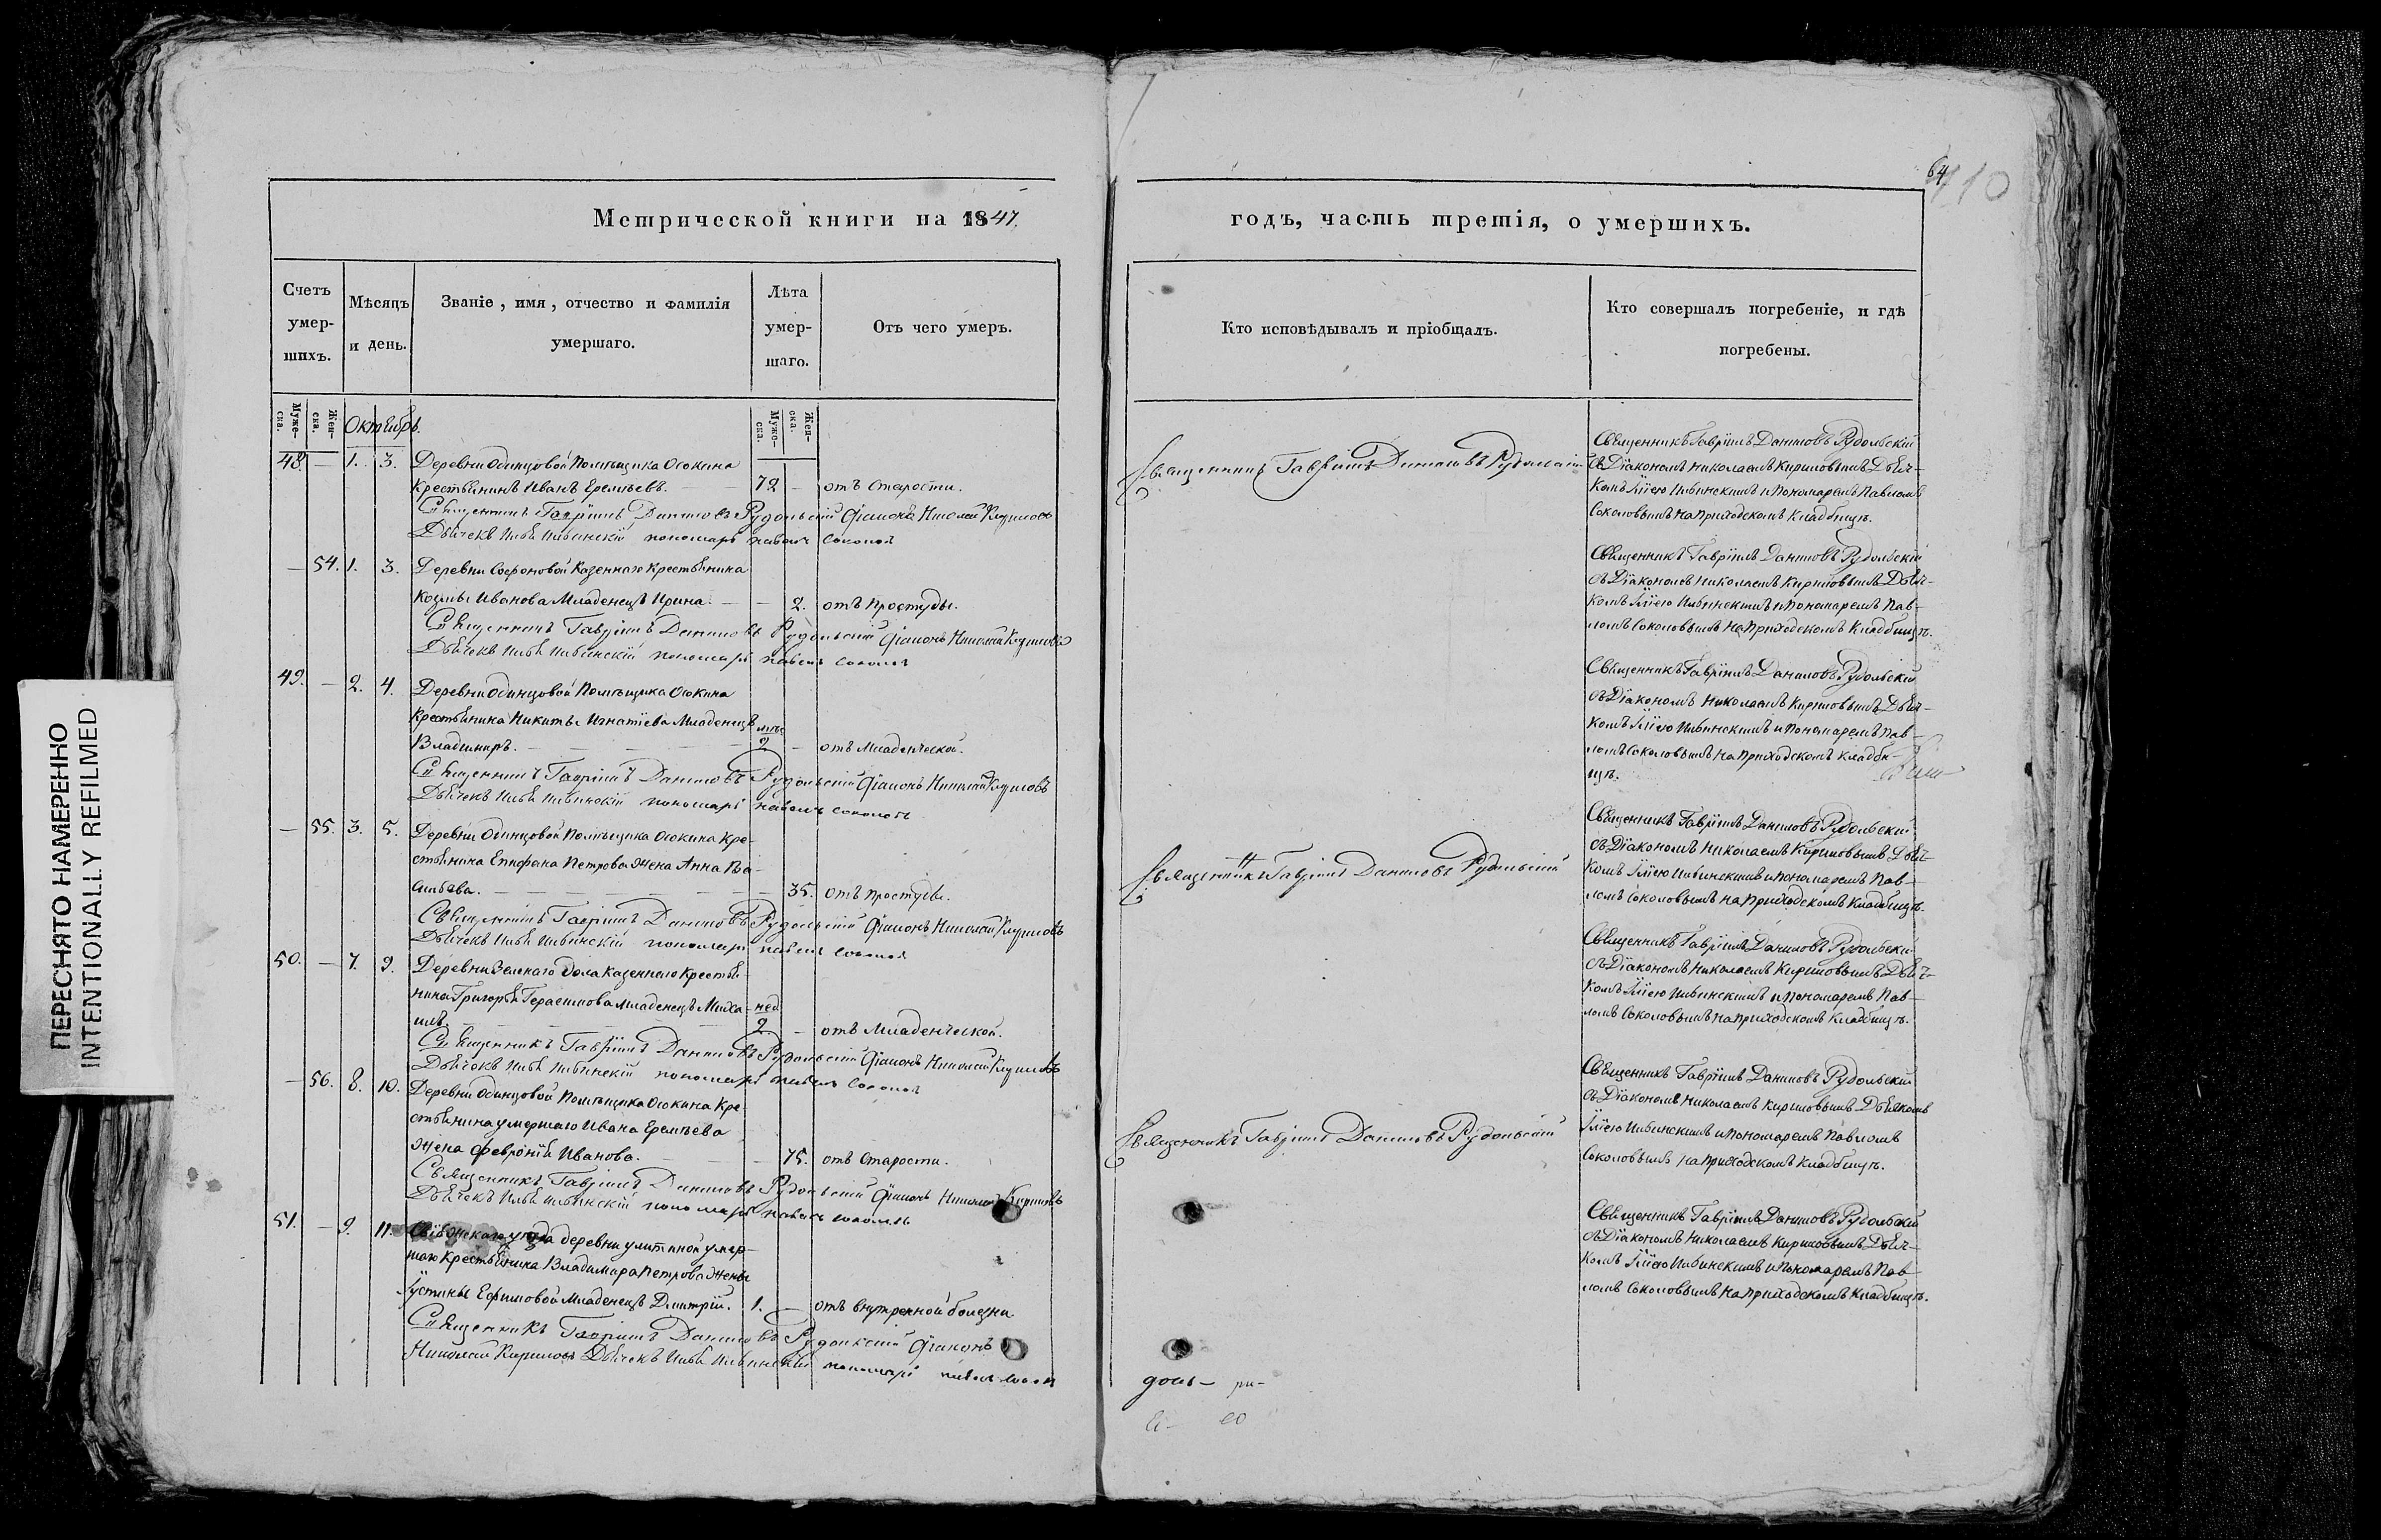 64
110
Метрической книги на 1847.
годъ, часть третія, о умершихъ.
Счетъ умер-шихъ.
Мѣсяцъ и день.
Званіе, имя, отчество и фамилія умершаго.
Лѣта умер-шаго.
Отъ чего умеръ.
Кто исповѣдывалъ и пріобщалъ.
Кто совершалъ погребеніе, и гдѣ погребены.
Муже-ска.
Жен-ска.
Октябрь.
Муже-ска.
Жен-ска.
48 — 1. 3. Деревни Одинцовой Помѣщика Осокина
Крестьянинъ Иванъ Еремѣевъ. — 72 — отъ Старости.
Священникъ Гавріилъ Даниловъ Рудольскій Діаконъ Николай Кириловъ
Дьячекъ Илья Ильинскій пономарь Павелъ Соколовъ
Священникъ Гавріилъ Даниловъ Рудольскій
Священникъ Гавріилъ Даниловъ Рудольскій
съ Діакономъ Николаемъ Кириловымъ Дьяч-
комъ Иліею Ильинскимъ и Пономаремъ Павломъ
Соколовымъ на приходскомъ кладбищѣ.
— 54. 1. 3. Деревни Софоновой Казеннаго Крестьянина
Козмы Иванова Младенецъ Ирина. — — 2. отъ простуды.
Священникъ Гавріилъ Даниловъ Рудольскій Діаконъ Николай Кириловъ
Дьячекъ Илья Ильинскій пономарь Павелъ Соколовъ
Священникъ Гавріилъ Даниловъ Рудольскій
съ Діакономъ Николаемъ Кириловымъ Дьяч-
комъ Иліею Ильинскимъ и Пономаремъ Пав-
ломъ Соколовымъ на приходскомъ кладбищѣ.
49. — 2. 4. Деревни Одинцовой Помѣщика Осокина
Крестьянина Никиты Игнатіева Младенецъ
Владимиръ. — 2 — отъ Младенческой.
Священникъ Гавріилъ Даниловъ Рудольскій Діаконъ Николай Кириловъ
Дьячекъ Илья Ильинскій пономарь Павелъ Соколовъ
Священникъ Гавріилъ Даниловъ Рудольскій
съ Діакономъ Николаемъ Кириловымъ Дьяч-
комъ Иліею Ильинскимъ и Пономаремъ Пав-
ломъ Соколовымъ на приходскомъ кладби-
щѣ.
— 55. 3. 5. Деревни Одинцовой Помѣщика Осокина Кре-
стьянина Епифана Петрова Жена Анна Ва-
сильева. — — 35. отъ простуды.
Священникъ Гавріилъ Даниловъ Рудольскій Діаконъ Николай Кириловъ
Дьячекъ Илья Ильинскій пономарь Павелъ Соколовъ
Священникъ Гавріилъ Даниловъ Рудольскій
Священникъ Гавріилъ Даниловъ Рудольскій
съ Діакономъ Николаемъ Кириловымъ Дьяч-
комъ Иліею Ильинскимъ и Пономаремъ Пав-
ломъ Соколовымъ на приходскомъ кладбищѣ.
50. — 7. 9. Деревни Зеленаго Дола Казеннаго Крестья-
нина Григорья Герасимова младенецъ Миха-
илъ. — нед. 2 — отъ Младенческой.
Священникъ Гавріилъ Даниловъ Рудольскій Діаконъ Николай Кириловъ
Дьячекъ Илья Ильинскій пономарь Павелъ Соколовъ
Священникъ Гавріилъ Даниловъ Рудольскій
съ Діакономъ Николаемъ Кириловымъ Дьяч-
комъ Иліею Ильинскимъ и Пономаремъ Пав-
ломъ Соколовымъ на приходскомъ кладбищѣ.
— 56. 8. 10. Деревни Одинцовой Помѣщика Осокина Кре-
стьянина умершаго Ивана Еремѣева
Жена Февронія Иванова. — 75. отъ Старости.
Священникъ Гавріилъ Даниловъ Рудольскій Діаконъ Николай Кириловъ
Дьячекъ Илья Ильинскій пономарь Павелъ Соколовъ
Священникъ Гавріилъ Даниловъ Рудольскій
Священникъ Гавріилъ Даниловъ Рудольскій
съ Діакономъ Николаемъ Кириловымъ Дьячкомъ
Иліею Ильинскимъ и Пономаремъ Павломъ
Соколовымъ на приходскомъ кладбищѣ.
51. — 9. 11. Свіяжскаго уѣзда деревни Улитиной умер-
шаго Крестьянина Владимара Петрова Жены
Іустины Ефимовой Младенецъ Дмитрій. 1. — отъ внутренной болезни
Священникъ Гавріилъ Даниловъ Рудольскій Діаконъ
Николай Кириловъ Дьячекъ Илья Ильинскій пономарь Павелъ Соколовъ
Священникъ Гавріилъ Даниловъ Рудольскій
съ Діакономъ Николаемъ Кириловымъ Дьяч-
комъ Иліею Ильинскимъ и Пономаремъ Пав-
ломъ Соколовымъ на приходскомъ кладбищѣ.
ПЕРЕСНЯТО НАМЕРЕННО
INTENTIONALLY REFILMED